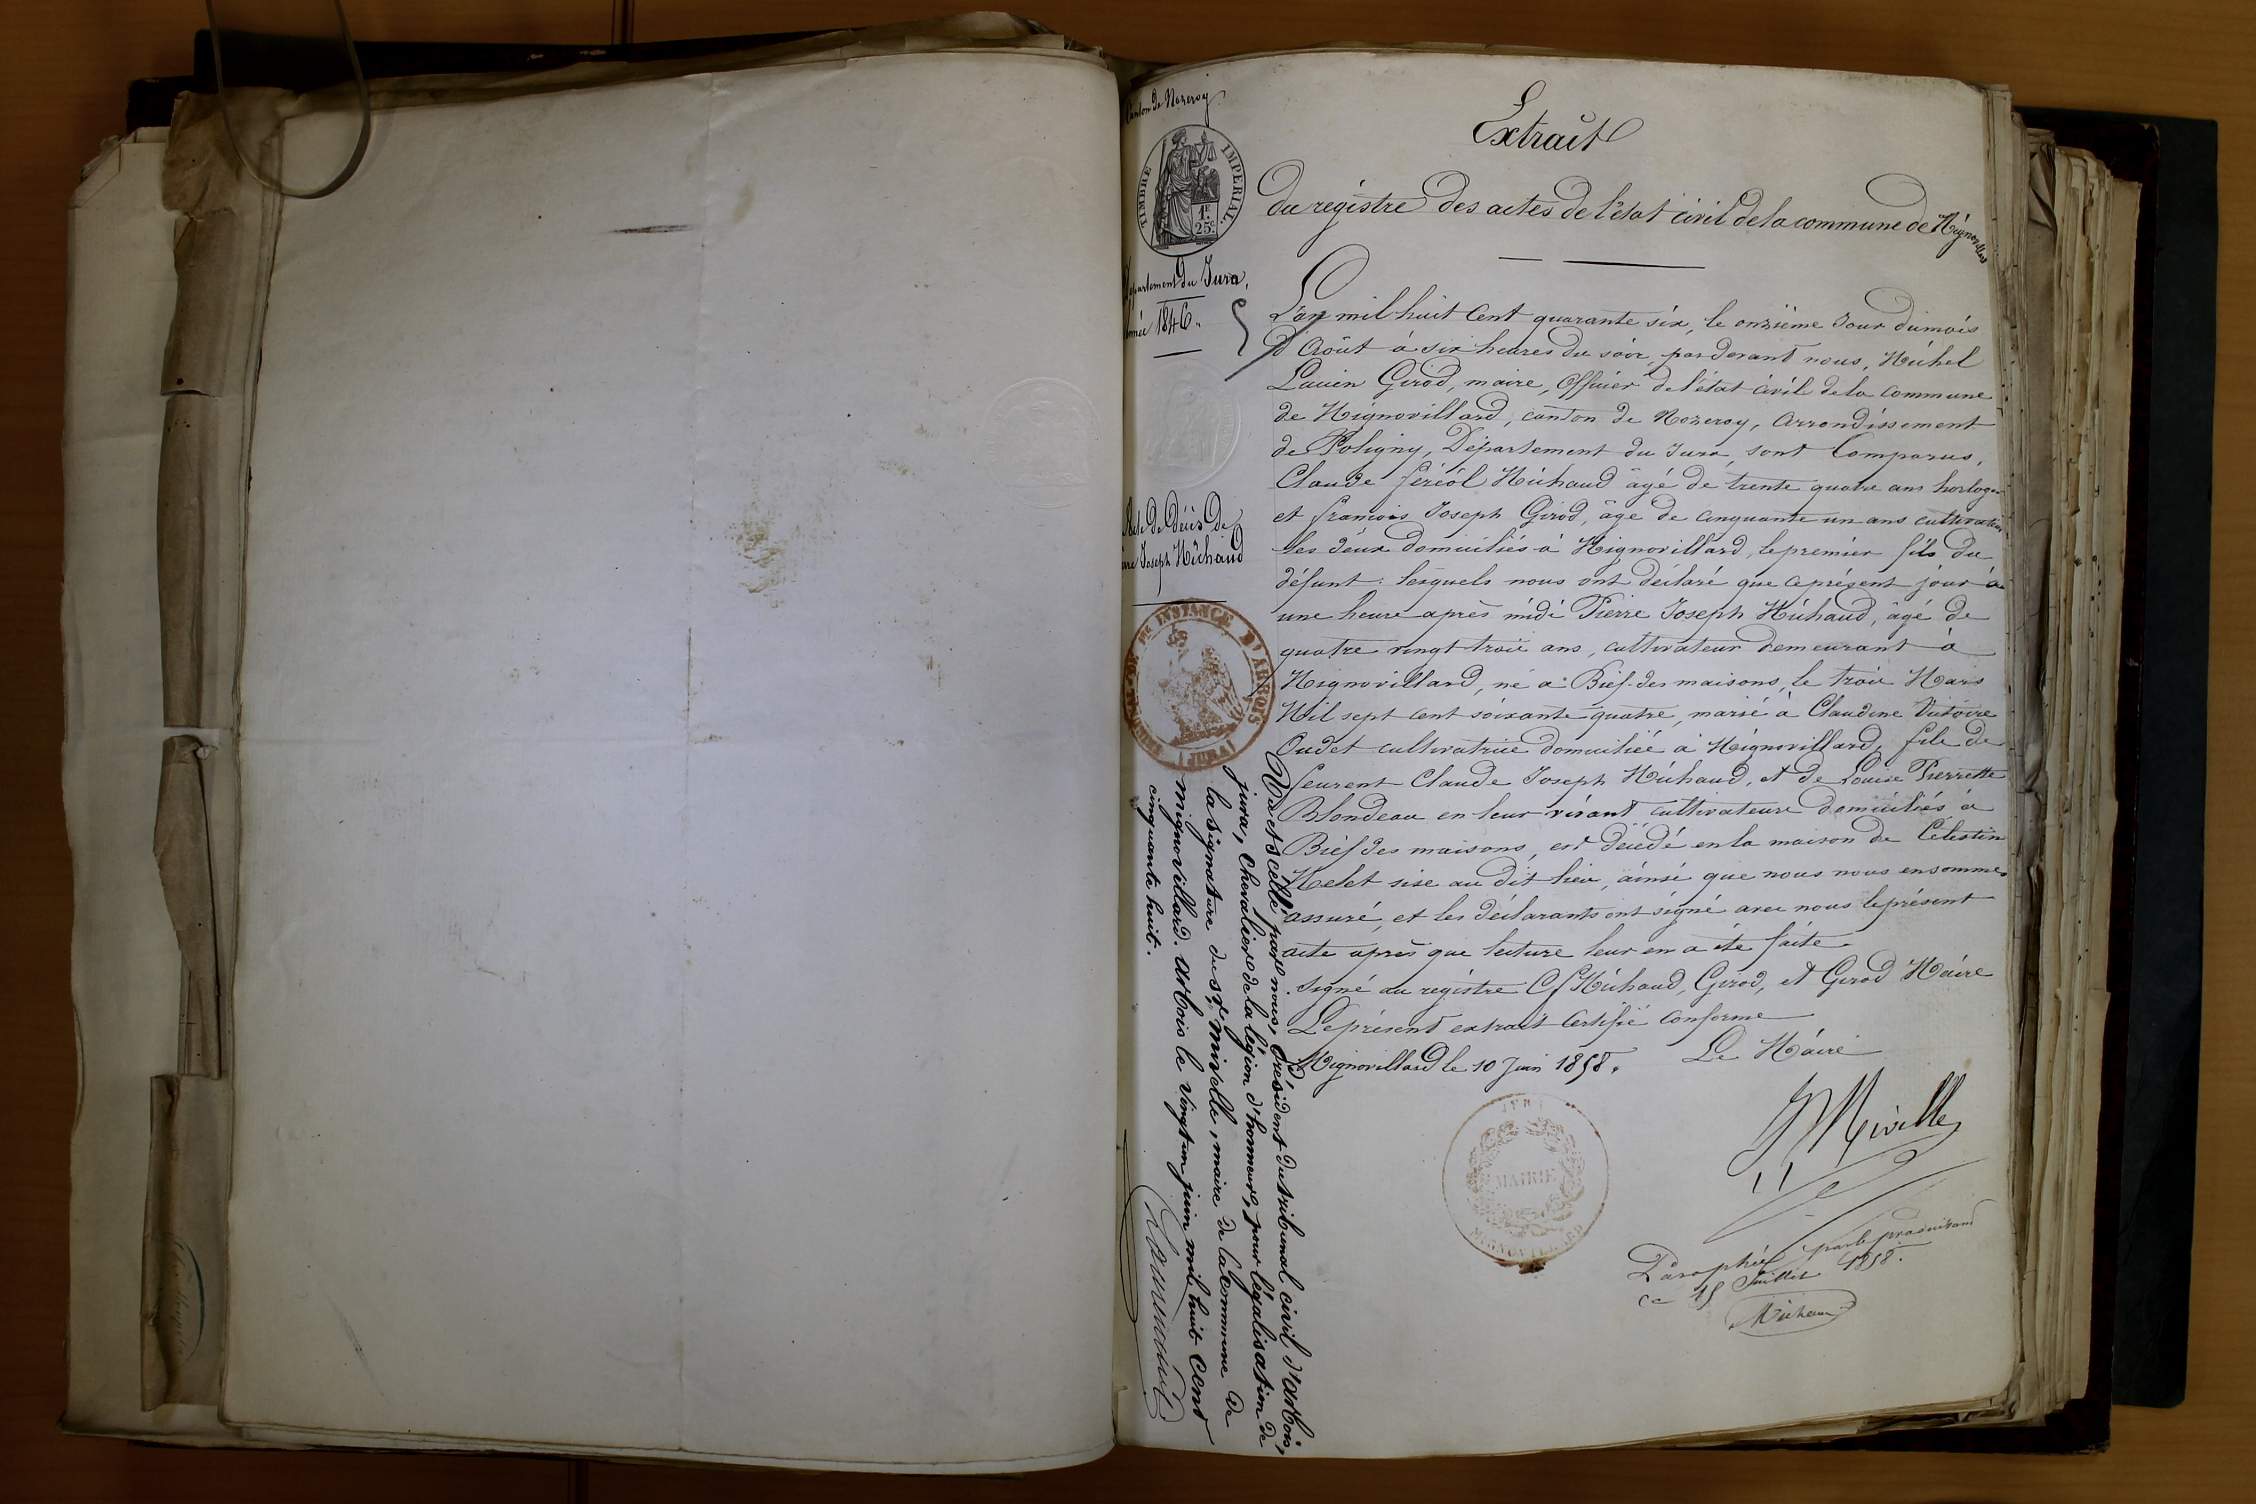 Canton de Nozeroy
TIMBRE IMPERIAL
1F.
25c.
Département du Jura,
Année 1846.
Acte de Décès de
Pierre Joseph Michaud
Extrait
du régistre des actes de l'état civil de la commune de Mignovillard
L'an mil huit Cent quarante six, le onzième Jour du mois
d'Août à six heures du soir, par devant nous, Michel
Lucien Girod, maire, Officier de l'état civil de la commune
de Mignovillard, canton de Nozeroy, Arrondissement
de Poligny, Département du Jura, sont Comparus,
Claude féréol Michaud âgé de trente quatre ans horloger
et françois Joseph Girod, âgé de cinquante un ans cultivateur
les deux domiciliés à Mignovillard, le premier fils du
défunt : lesquels nous ont déclaré que ce présent jour à
une heure après midi Pierre Joseph Michaud, âgé de
quatre vingt trois ans, cultivateur demeurant à
Mignovillard, né à Bief des maisons, le trois Mars
Mil sept cent soixante quatre, marié à Claudine Victoire
Oudet cultivatrice domiciliée à Mignovillard, fils de
feurent Claude Joseph Michaud, et de Louise Pierrette
Blondeau en leur vivant cultivateurs domiciliés à
Bief des maisons, est décédé en la maison de Célestin
sise au dit lieu, ainsi que nous nous en sommes
assuré, et les déclarants ont signé avec nous le présent
acte après que lecture leur en a été faite.
Signé au régistre Cf Michaud, Girod, et Girod Maire
Le présent extrait Certifié Conforme
Mignovillard le 10 Juin 1858. Le Maire
Miville
MAIRIE
MIGNOVILLARD
JURA
Paraphé par le produisant
ce 15 Juillet 1858.
Michaud
TRIBUNAL DE 1re INSTANCE D'ARBOIS
(JURA)
Vu et scellé par nous, Président du tribunal civil d'arbois,
jura, Chevalier de la légion d'honneur, pour légalisation de
la signature du Sr. Miville, maire de la commune de
Mignovillard. Arbois le vingt un juin mil huit cent
cinquante huit.